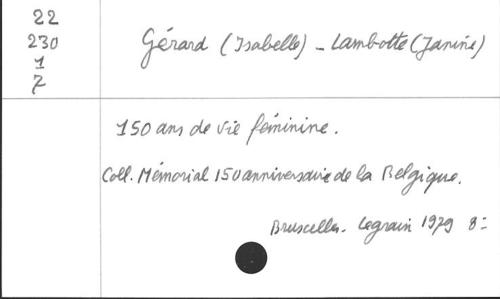 22
230
1
7
Gérard (Isabelle) - Lambotte (Janine)
150 ans de vie féminine.
Coll. Mémorial 150 anniversaire de la Belgique.
Bruxelles. Legrain 1979 8=